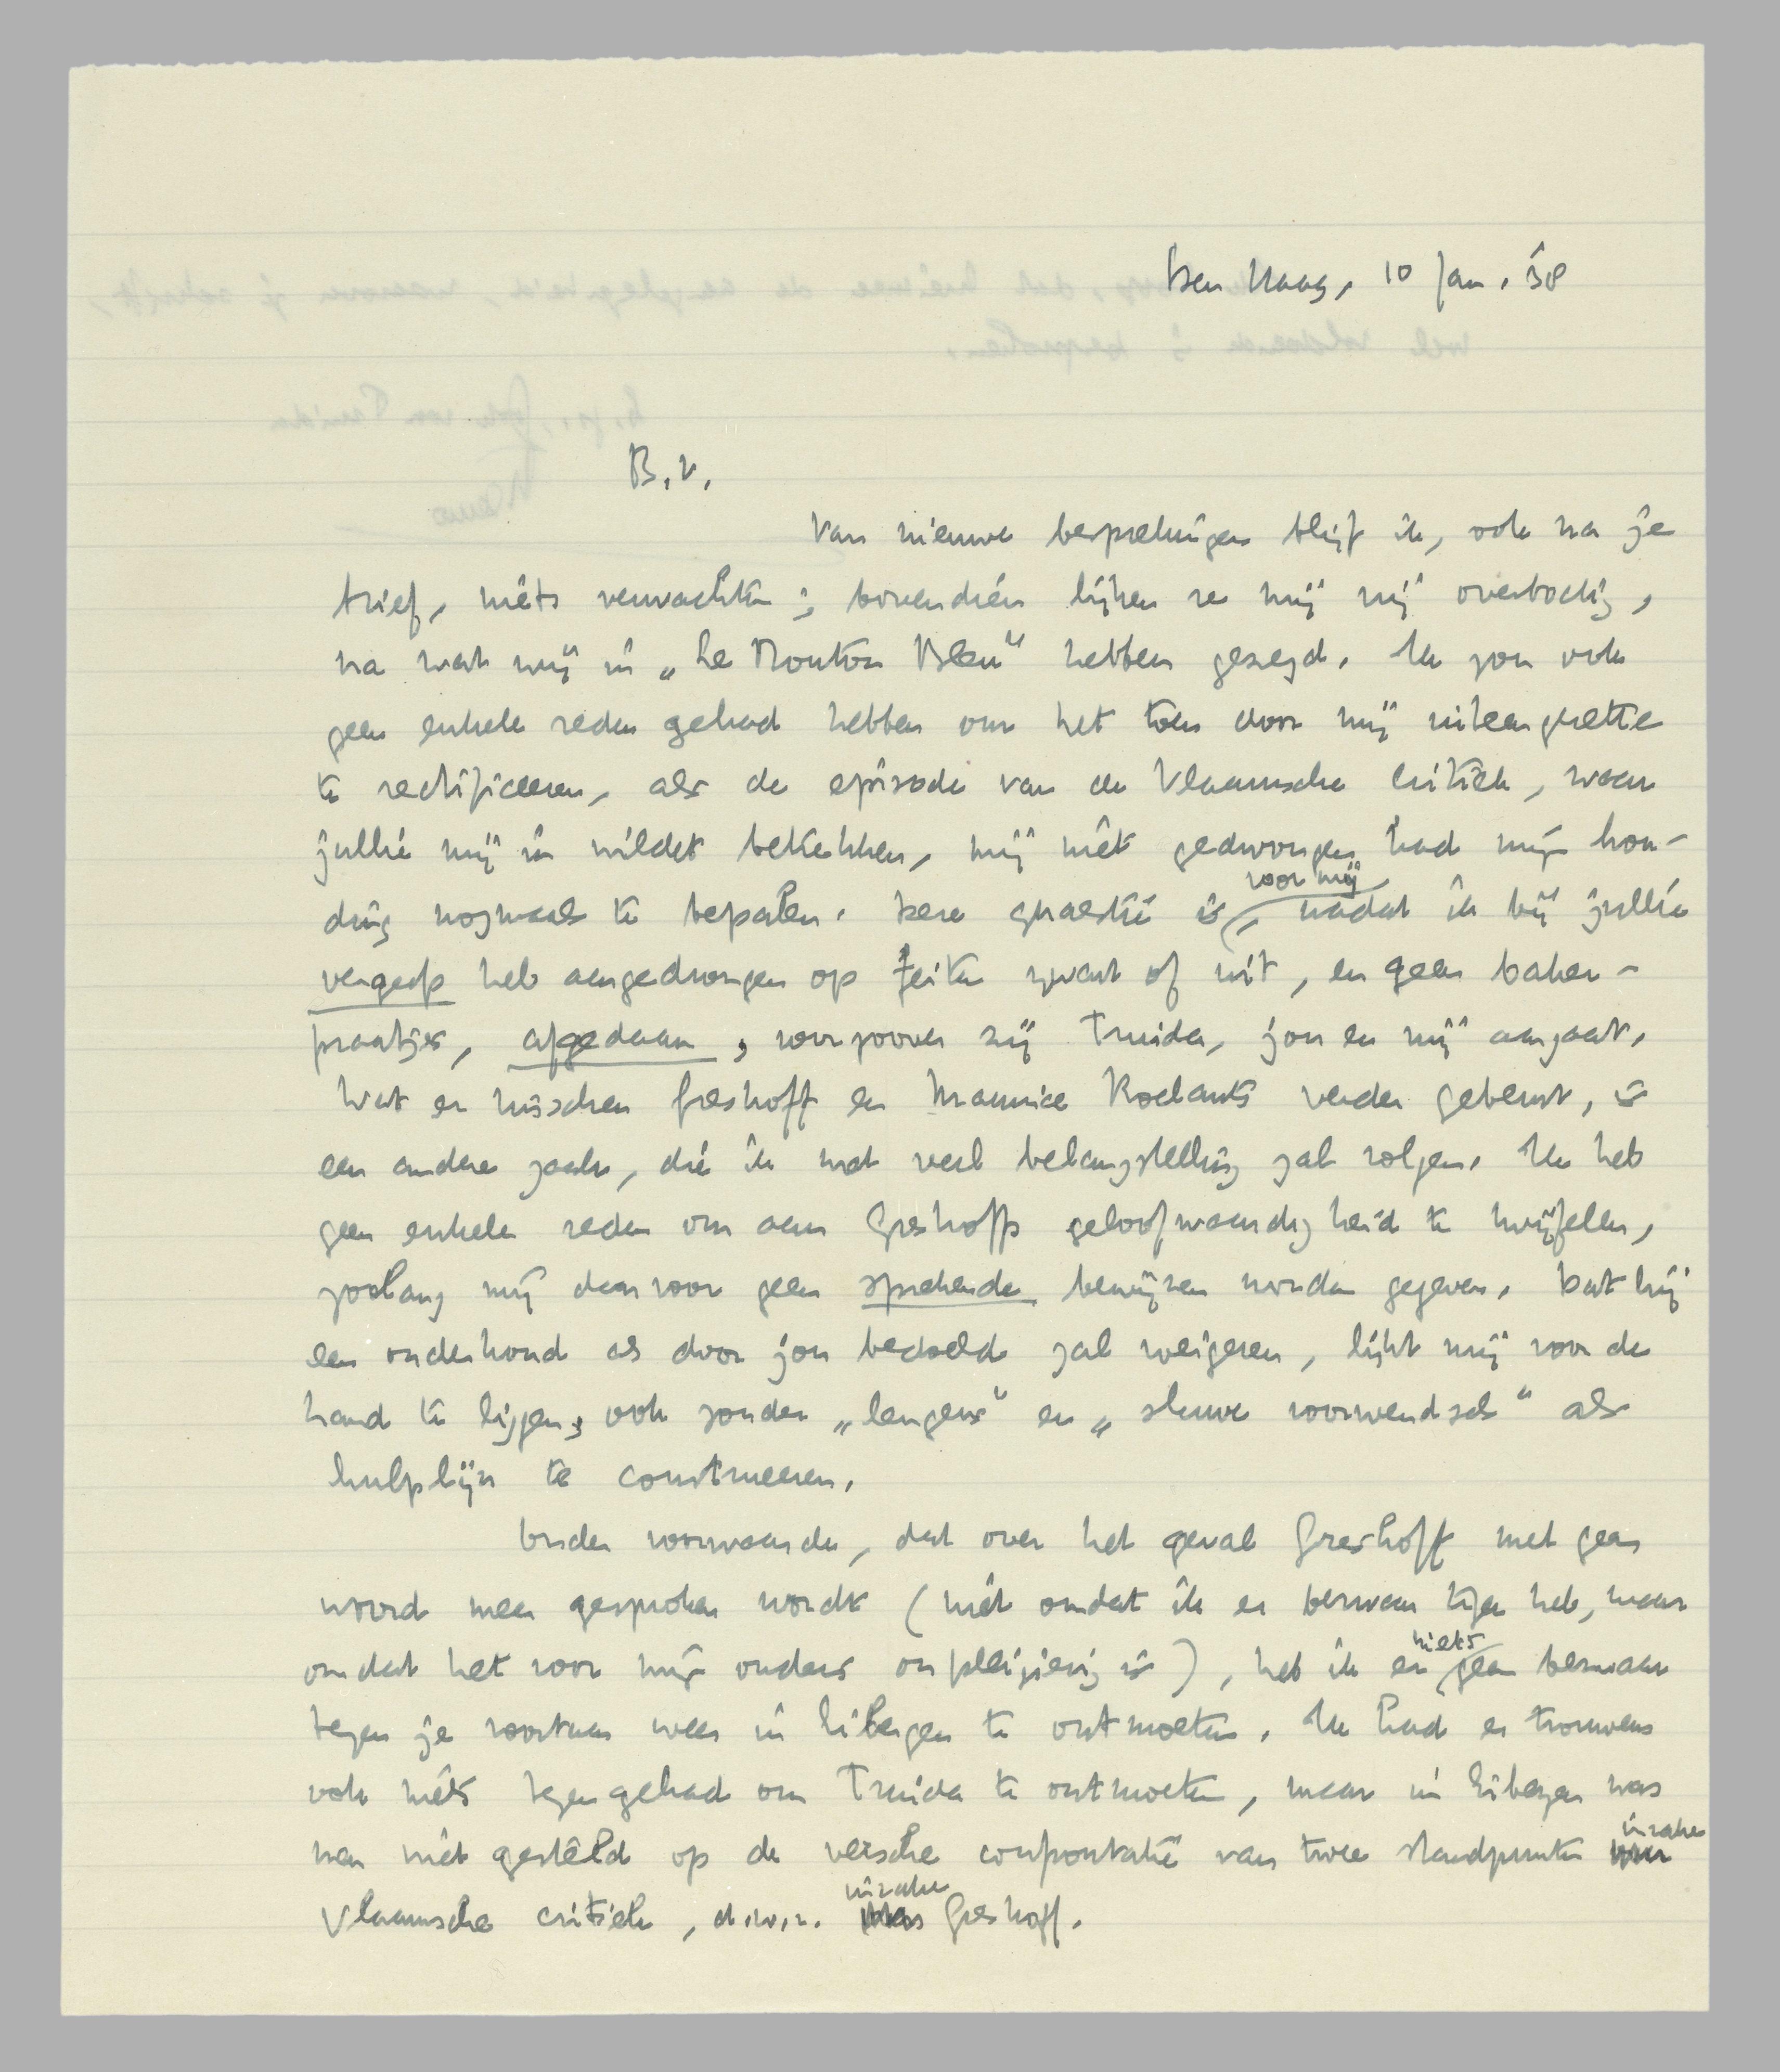 Den Haag, 10 Jan. '38
B.V.
Van nieuwe besprekingen blijf ik, ook na je
brief, niets verwachten; bovendien lijken ze mij vrij overbodig,
na wat wij in „Le Mouton Bleu" hebben gezegd. Ik zou ook
geen enkele reden gehad hebben om het toen door mij uiteengezette
te rectificeeren, als de episode van de Vlaamsche critiek, waar
jullie mij in wildet betrekken, mij niet gedwongen had mijn hou-
ding nogmaals te bepalen. Deze quaestie is voor mij, nadat ik bij jullie
vergeefs heb aangedrongen op feiten zwart of wit, en geen baker-
praatjes, afgedaan, voorzoover zij Truida, jou en mij aangaat.
Wat er tusschen Greshoff en Maurice Roelants verder gebeurt, is
een andere zaak, die ik met veel belangstelling zal volgen. Ik heb
geen enkele reden om aan Greshoffs geloofwaardigheid te twijfelen,
zoolang mij daarvoor geen sprekende bewijzen worden gegeven. Dat hij
een onderhoud als door jou bedoeld zal weigeren, lijkt mij voor de
hand te liggen, ook zonder „leugens" en „sluwe voorwendsels" als
hulplijn te construeeren.
Onder voorwaarde, dat over het geval Greshoff met geen
woord meer gesproken wordt (niet omdat ik er bezwaar tegen heb, maar
omdat het voor mijn ouders onpleizierig is), heb ik er niets geen bezwaar
tegen je voortaan weer in Eibergen te ontmoeten. Ik had er trouwens
ook niets tegen gehad om Truida te ontmoeten, maar in Eibergen was
men niet gesteld op de versche confrontatie van twee standpunten inzake
Vlaamsche critiek, d.w.z. inzake Greshoff.